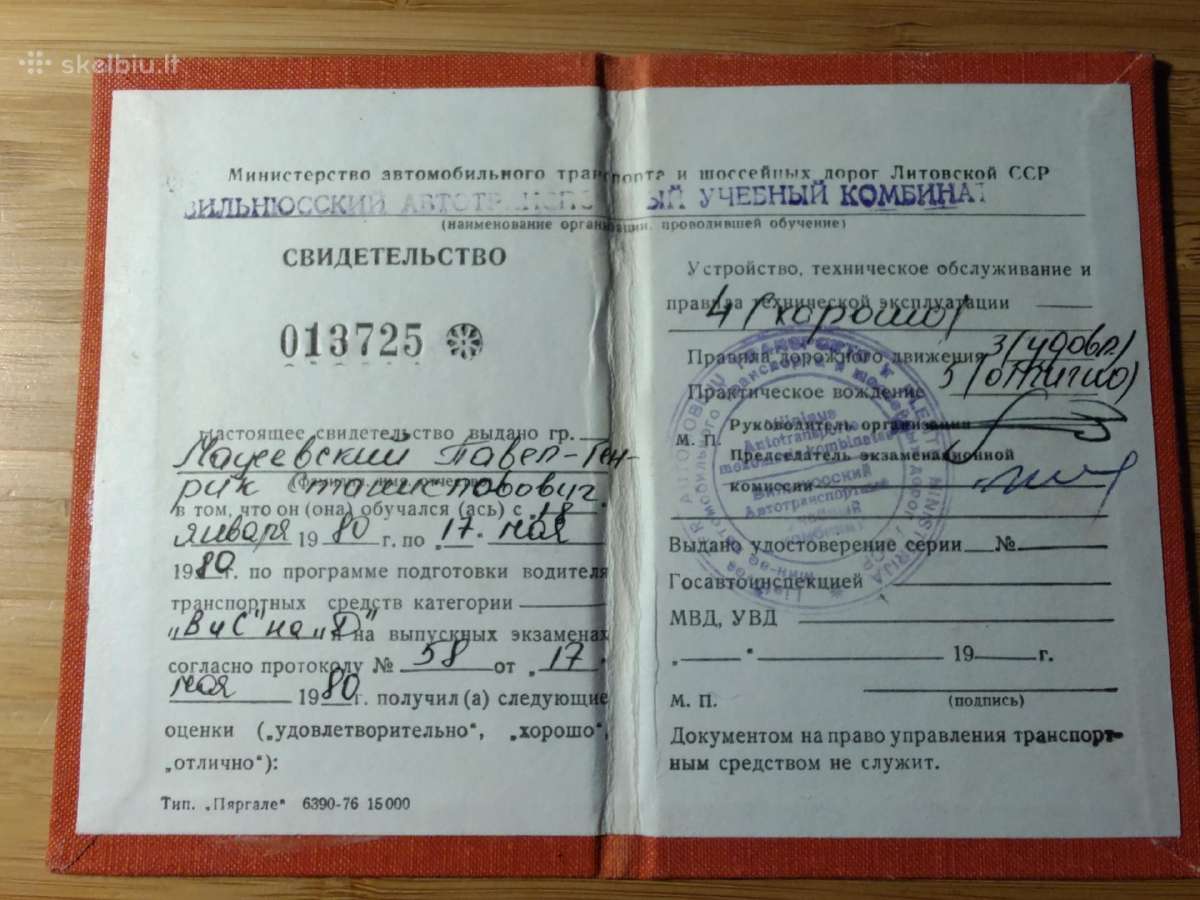 skelbiu.lt
Министерство автомобильного транспорта и шоссейных дорог Литовской ССР
ВИЛЬНЮССКИЙ АВТОТРАНСПОРТНЫЙ УЧЕБНЫЙ КОМБИНАТ
(наименование организации, проводившей обучение)
СВИДЕТЕЛЬСТВО
013725
настоящее свидетельство выдано гр.
Павел-Ген-
рик Станиславович
(фамилия, имя, отчество)
в том, что он (она) обучался (ась) с „18.
января 1980 г. по „17. мая
1980г. по программе подготовки водителя
транспортных средств категории
„В и С" на „Д" на выпускных экзаменах
согласно протоколу № 58 от „17"
мая 1980г. получил (а) следующие
оценки („удовлетворительно“, „хорошо“,
„отлично“):
Тип. „Пяргале“ 6390-76 15000
Устройство, техническое обслуживание и
правила технической эксплуатации
4 (хорошо)
Правила дорожного движения 3 (удовл.)
Практическое вождение 5 (отлично)
Руководитель организации
М. П.
Председатель экзаменационной
комиссии
Vilniaus
Вильнюсский
Автотранспортный
Выдано удостоверение серии №
Госавтоинспекцией
МВД, УВД
„ “ 19 г.
М. П. (подпись)
Документом на право управления транспорт-
ным средством не служит.